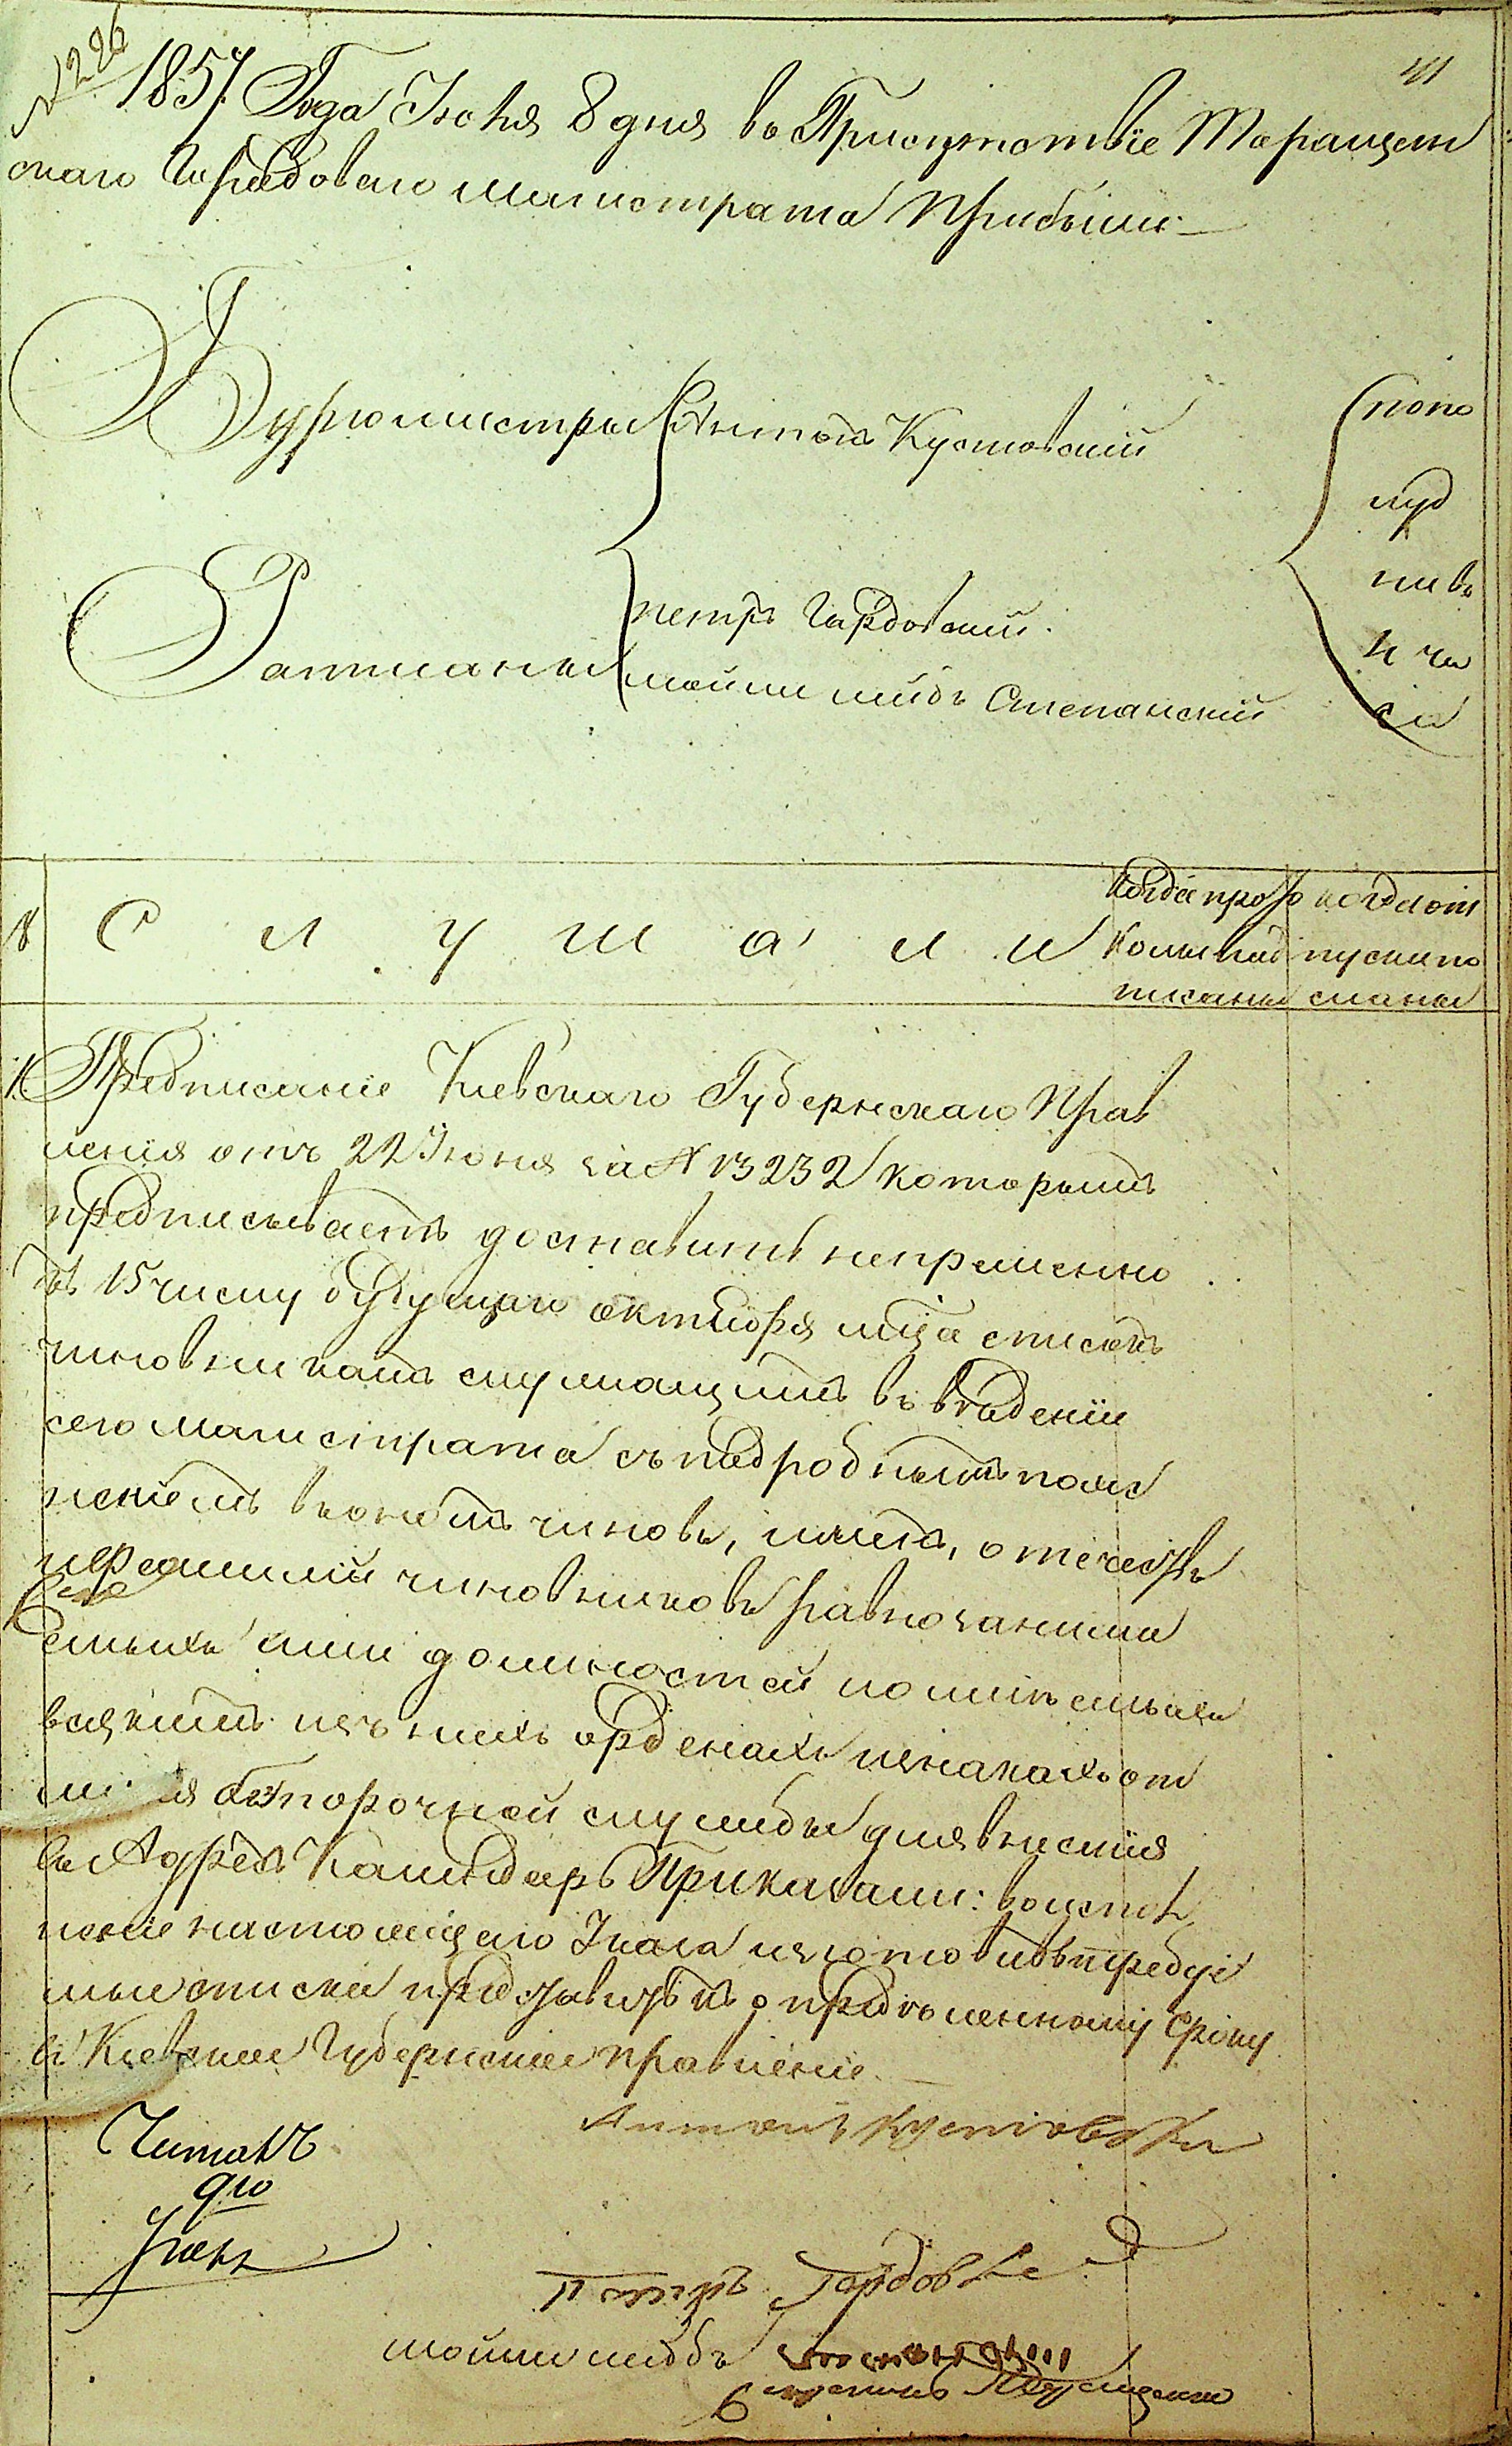 N 226
41
1857 Года Июня 8 дня во Присутствіе Таращан
скаго Городоваго магистрата Прибыли
Бургомистры Антонъ Кустовскій
Ратманы петръ Гардовскій
мошки лейбъ Степанскій
попо
луд
ни въ
4 ча
са
N С л у ш а л и
Когда прото
колы под
писаны
когда от
пуски по
сланы
1. Предписаніе Кіевскаго Губернскаго Прав
ленія отъ 22 Июня за N 13232 которымъ
предписываетъ доставить непременно
къ 15 числу будущаго октября мца списокъ
чиновникамъ служащимъ въ вѣденіи
сего магистрата съ подробнымъ пояс
неніемъ въ ономъ чиновъ, именъ, отечествъ
и фамилій чиновниковъ равно занима
емыхъ ими должностей
изъ нихъ орденахъ и знакахъ от
безпорочной службы для внесенія
въ Адресъ Календарь Приказали: во испол
неніе настоящаго Указа изготовивъ требуе
мые списки представить къ опредѣленному сроку
въ Кіевское Губернское правленіе.
Антонъ Кустовскі
Читалъ
Петръ Гардовск
мошки лейбъ